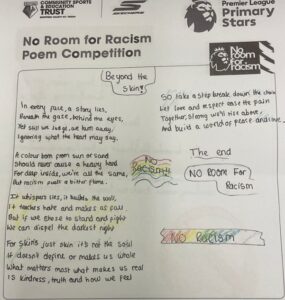 COMMUNITY SPORTS
& EDUCATION
TRUST
SKECHERS
Premier League
Primary
Stars
No Room for Racism
Poem Competition
No
room
for
racism
Beyond the
Skin!
In every face, a story lies,
Beneath the gaze, behind the eyes,
Yet still we judge, we turn away,
Ignoring what the heart may say.
A colour born from sun or sand
Should never cause a heavy hand
For deep inside, we're all the same,
But racism plays a bitter game.
It whispers lies, it builds the wall,
It teaches hate and makes us fall
But if we chose to stand and fight
We can dispel the darkest night
For skin's just skin it's not the soul
It doesn't define or make us whole
What matters most what makes us real
Is kindness, truth and how we feel
So take a step break down the chain
Let love and respect ease the pain
Together, strong we'll rise above
And build a world of peace and love.
NO
Racism!!
The end
NO ROOM FOR
Racism
NO Racism